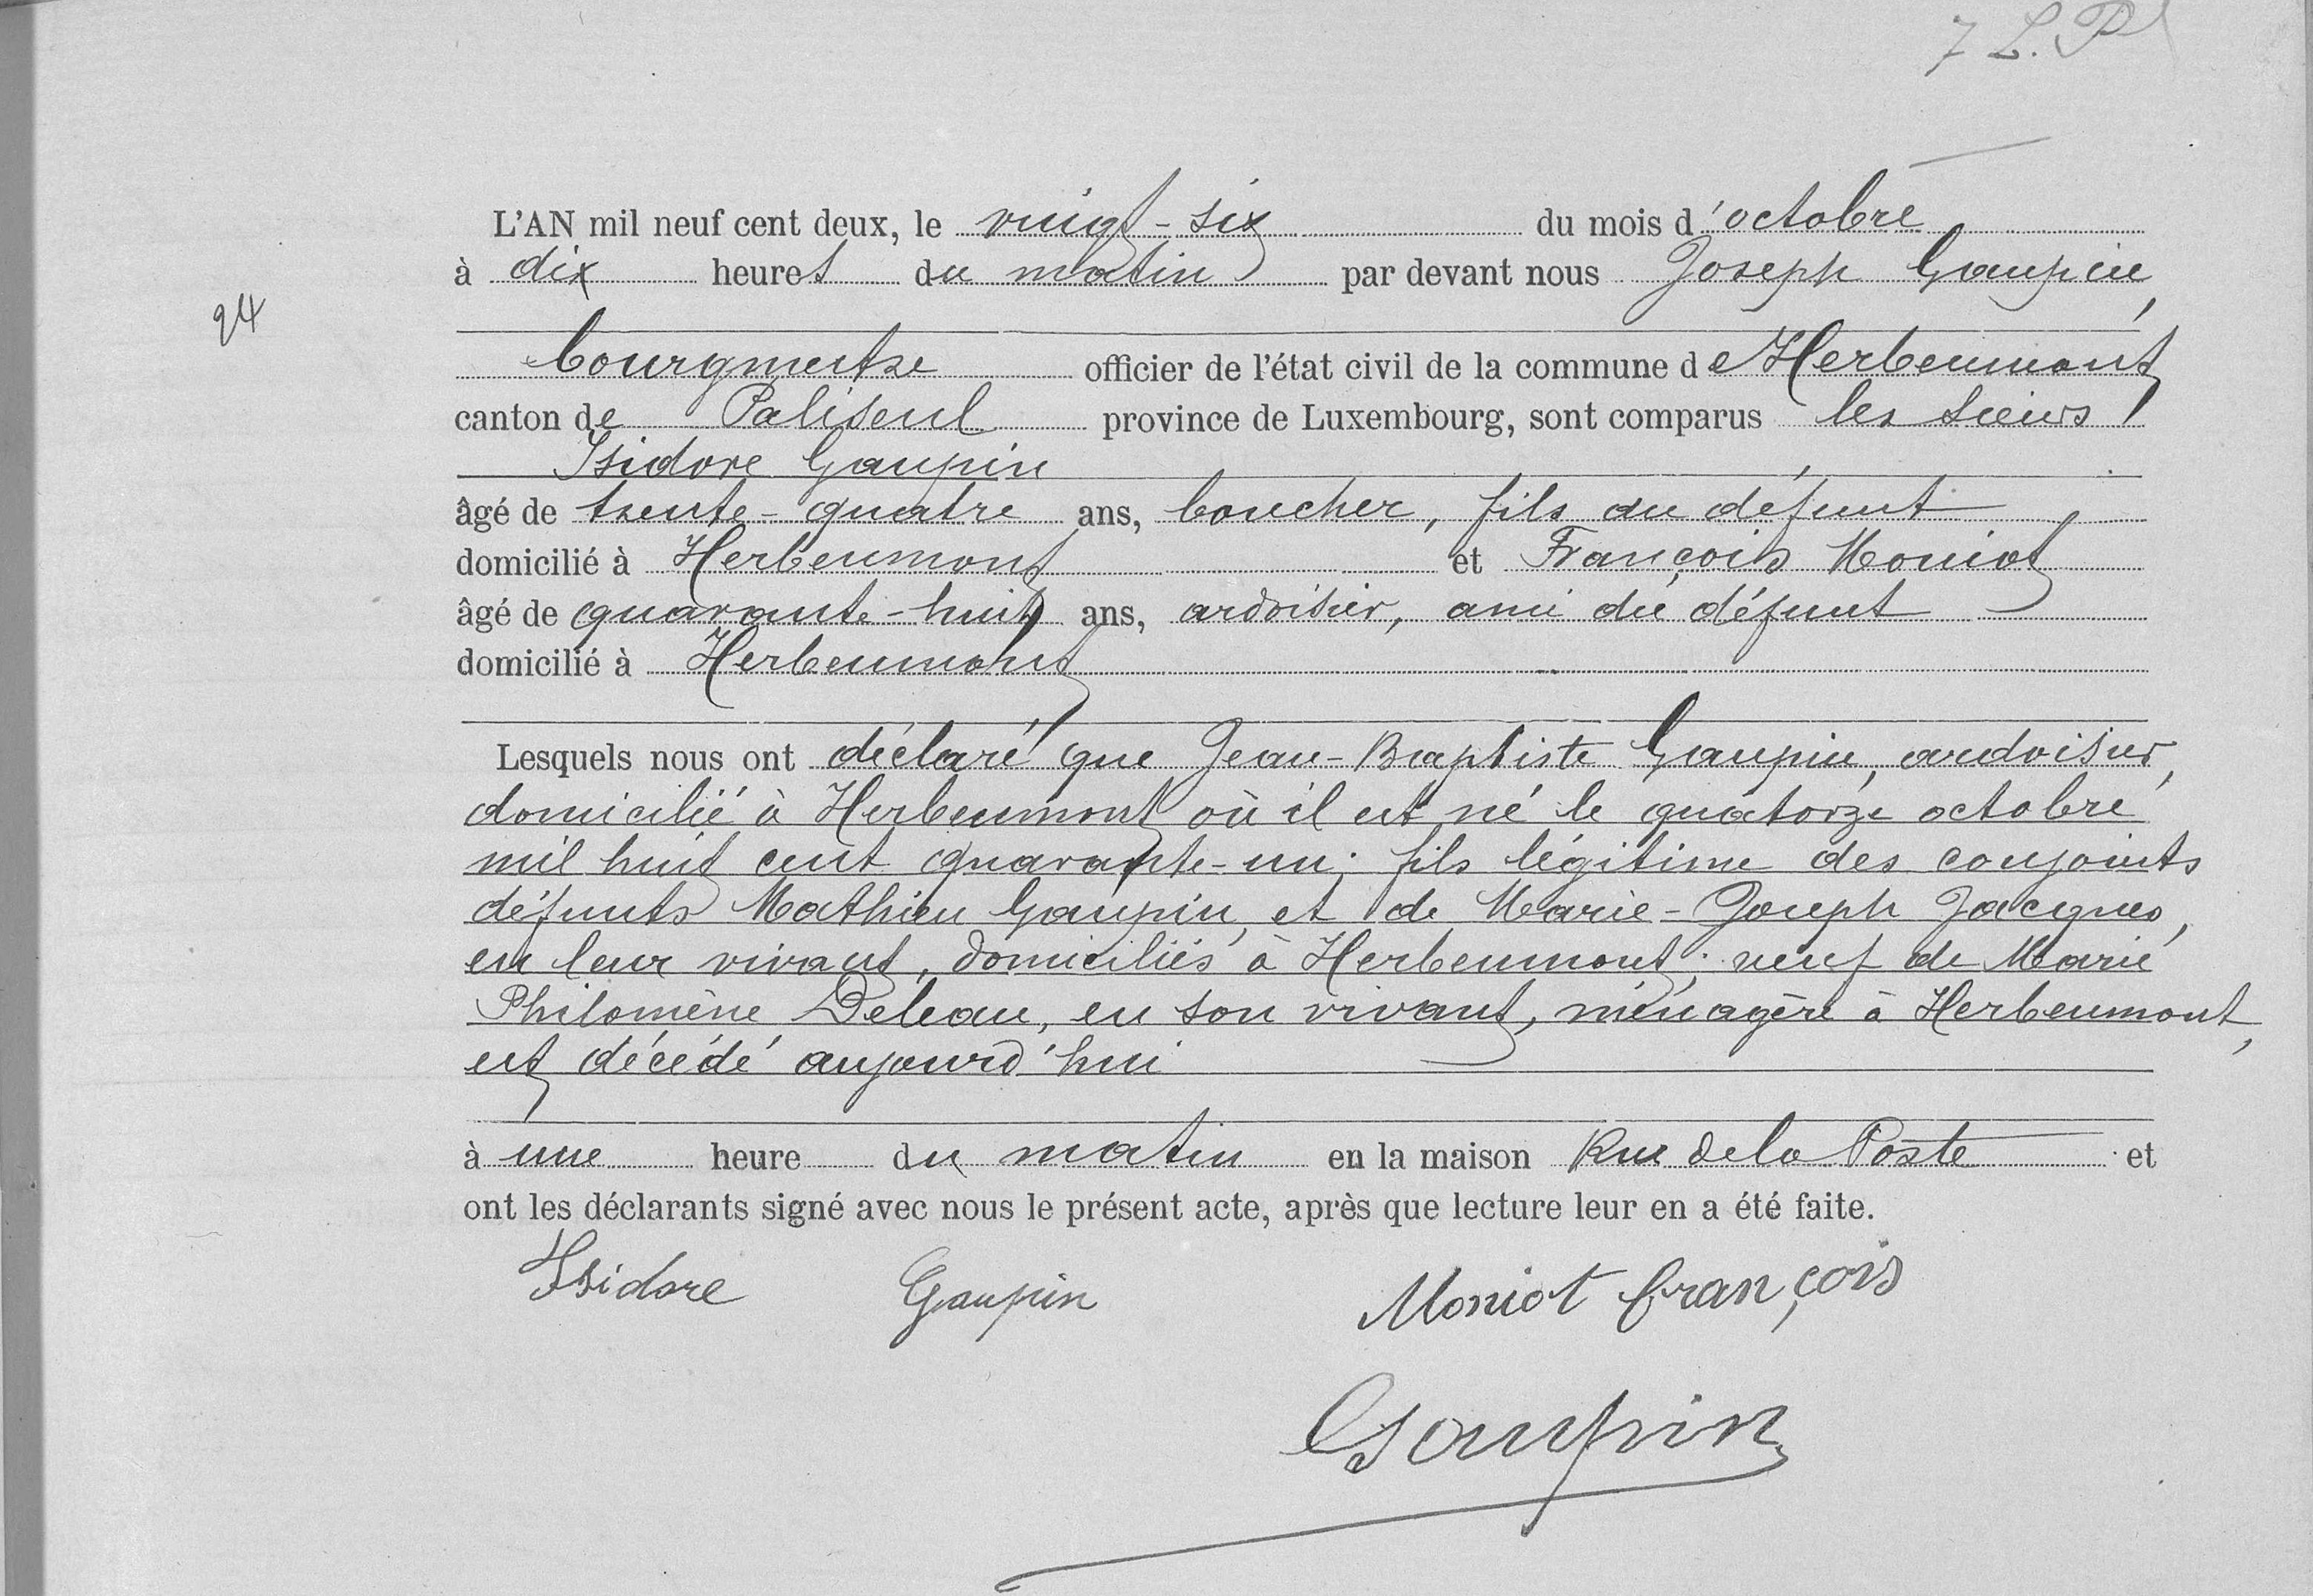 7 L. P
L'AN mil neuf cent deux, le vingt-six du mois d'octobre
à dix heures du matin par devant nous Joseph Gaupin,
24
bourgmestre officier de l'état civil de la commune de Herbeumont
canton de Paliseul province de Luxembourg, sont comparus les sieurs
Isidore Gaupin
âgé de trente-quatre ans, boucher, fils du défunt
domicilié à Herbeumont et François Moniot
âgé de quarante-huit ans, ardoisier, ami du défunt
domicilié à Herbeumont
Lesquels nous ont déclaré que Jean-Baptiste Gaupin, ardoisier,
domicilié à Herbeumont où il est né le quatorze octobre
mil huit cent quarante-un; fils légitime des conjoints
défunts Mathieu Gaupin, et de Marie-Joseph Jacques,
en leur vivant, domiciliés à Herbeumont; veuf de Marie
Philomène Deleau, en son vivant, ménagère à Herbeumont,
est décédé aujourd'hui
à une heure du matin en la maison Rue de la Poste et
ont les déclarants signé avec nous le présent acte, après que lecture leur en a été faite.
Isidore Gaupin Moniot françois
Gaupin